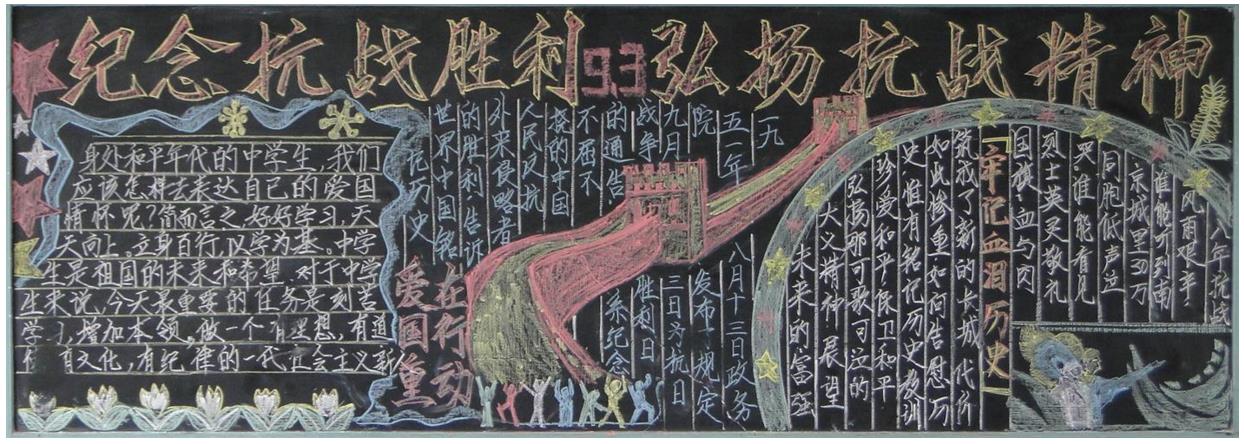 纪念抗战胜利93弘扬抗战精神
身处和平年代的中学生,我们
应该怎样去表达自己的爱国
情怀呢?简而言之,好好学习,天
天向上。立身百行,以学为基。中学
生是祖国的未来和希望.对于中学
生来说,今天最重要的任务是刻苦
学习,增加本领,做一个有理想,有道
有文化,有纪律的一代社会主义新人
爱国重
在行动
一九
五一年
八月十三日政务
院
发布一规定
九月
三日为抗日
战争
胜利日
的通告
系纪念
不屈不
挠的中国
人民反抗
外来侵略者
的胜利.告诉
世界.中国铭
记历史
八年抗战
风雨艰辛
谁能听到南
京城里三万
同胞低声泣
哭谁能看见
烈士英灵敬礼
国旗.血与肉
牢记血泪历史
筑成了新的长城 代价
如此惨重如何告慰历
史 惟有铭记历史教训
珍爱和平保卫和平
弘扬那可歌可泣的
大义精神 展望
未来的富强